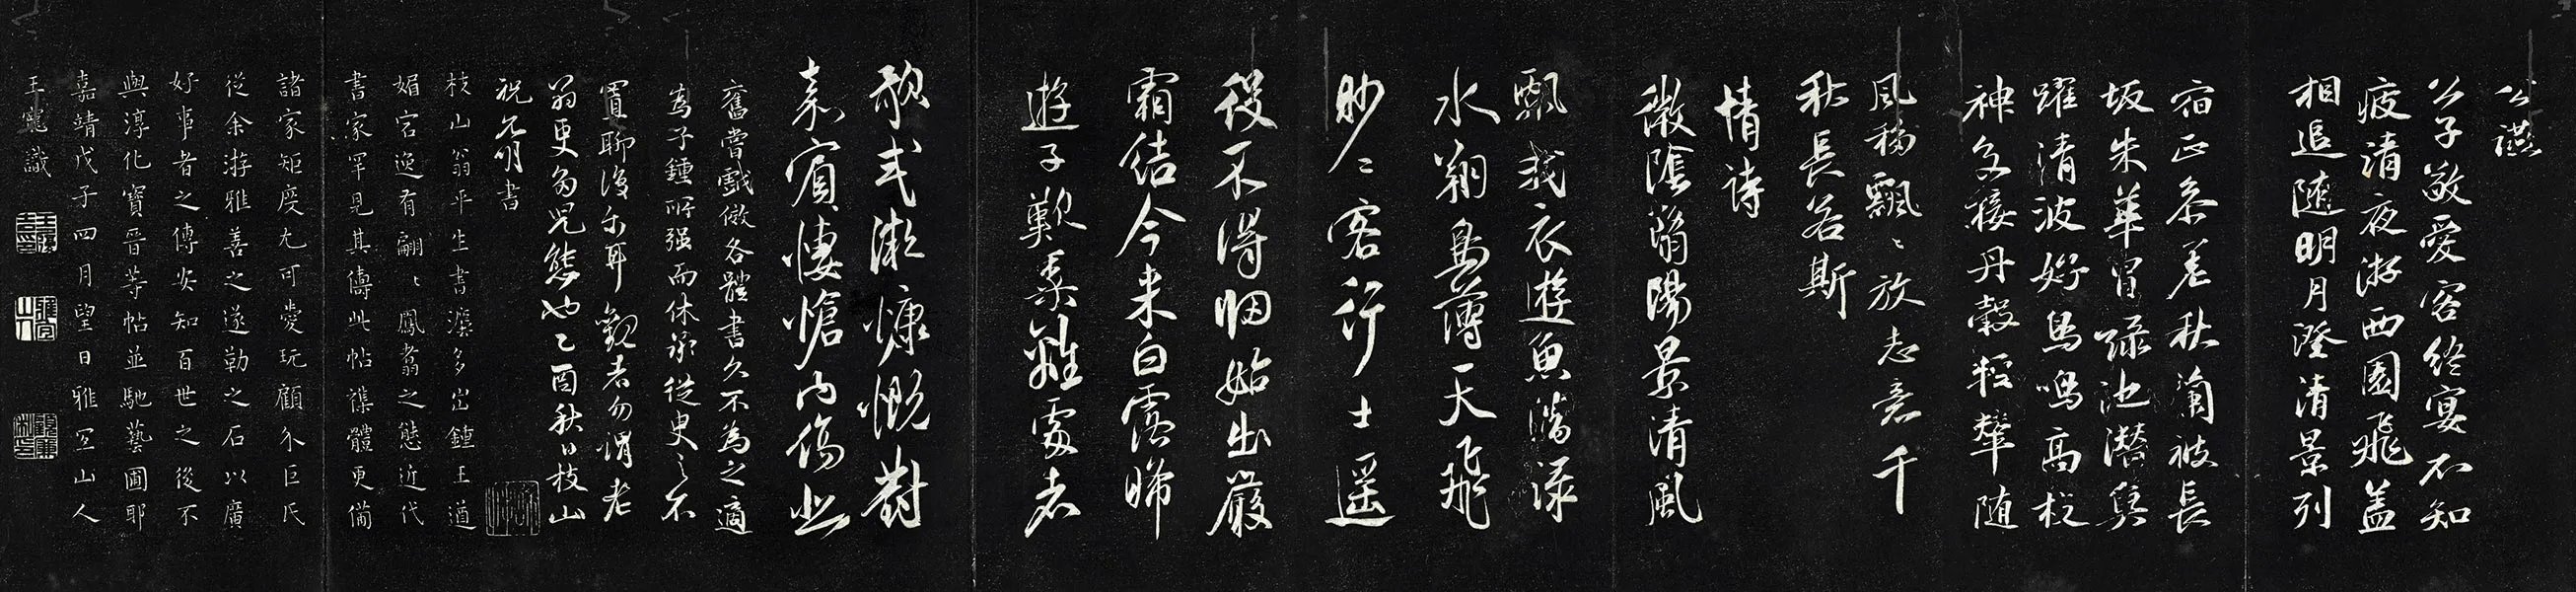 公讌
公子敬愛客終宴不知
疲清夜游西園飛盖
相追隨明月澄清景列
宿正参差秋蘭被長
坂朱華冒綠池潛魚
躍清波好鳥鳴高枝
神飈接丹轂輕輦随
風移飄〻放志意千
秋長若斯
情诗
微陰翳陽景清風
飄我衣遊魚潛淥
水翔鳥薄天飛
眇〻客行士遥
役不得歸始出嚴
霜结今来白露晞
遊子歎黍離處者
歌式微慷慨對
嘉賓悽愴內傷悲
舊嘗戲倣各體書久不為之適
為子鍾所强而休承從臾之不
置聊復尔耳觀者勿謂老
翁更為兒態也乙酉秋日枝山
祝允明書
枝山翁平生書瀍多出鍾王遒
媚宕逸有翩〻鳳翥之態近代
書家罕見其儔此帖雜體更備
諸家矩度尤可愛玩顧氏巨氏
從余游雅善之遂勒之石以廣
好事者之傳安知百世之後不
與淳化寶晋等帖並馳藝圃耶
嘉靖戊子四月望日雅宜山人
王寵識